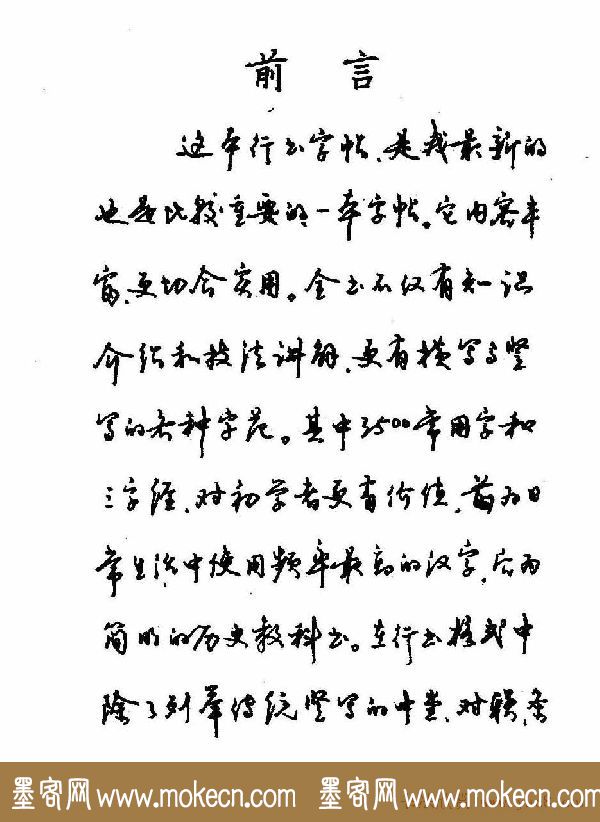 前言
这本行书字帖、是我最新的
也是比较重要的一本字帖。它内容丰
富、更切合实用。全书不仅有知识
介绍和技法讲解、更有横写与竖
写的各种字范。其中3500常用字和
三字经、对初学者更有价值，前为日
常生活中使用频率最高的汉字，后为
简明的历史教科书。在行书格式中
除了列举传统竖写的中堂、对联、条
墨客网 www.mokecn.com 墨客网 www.mokecn.com